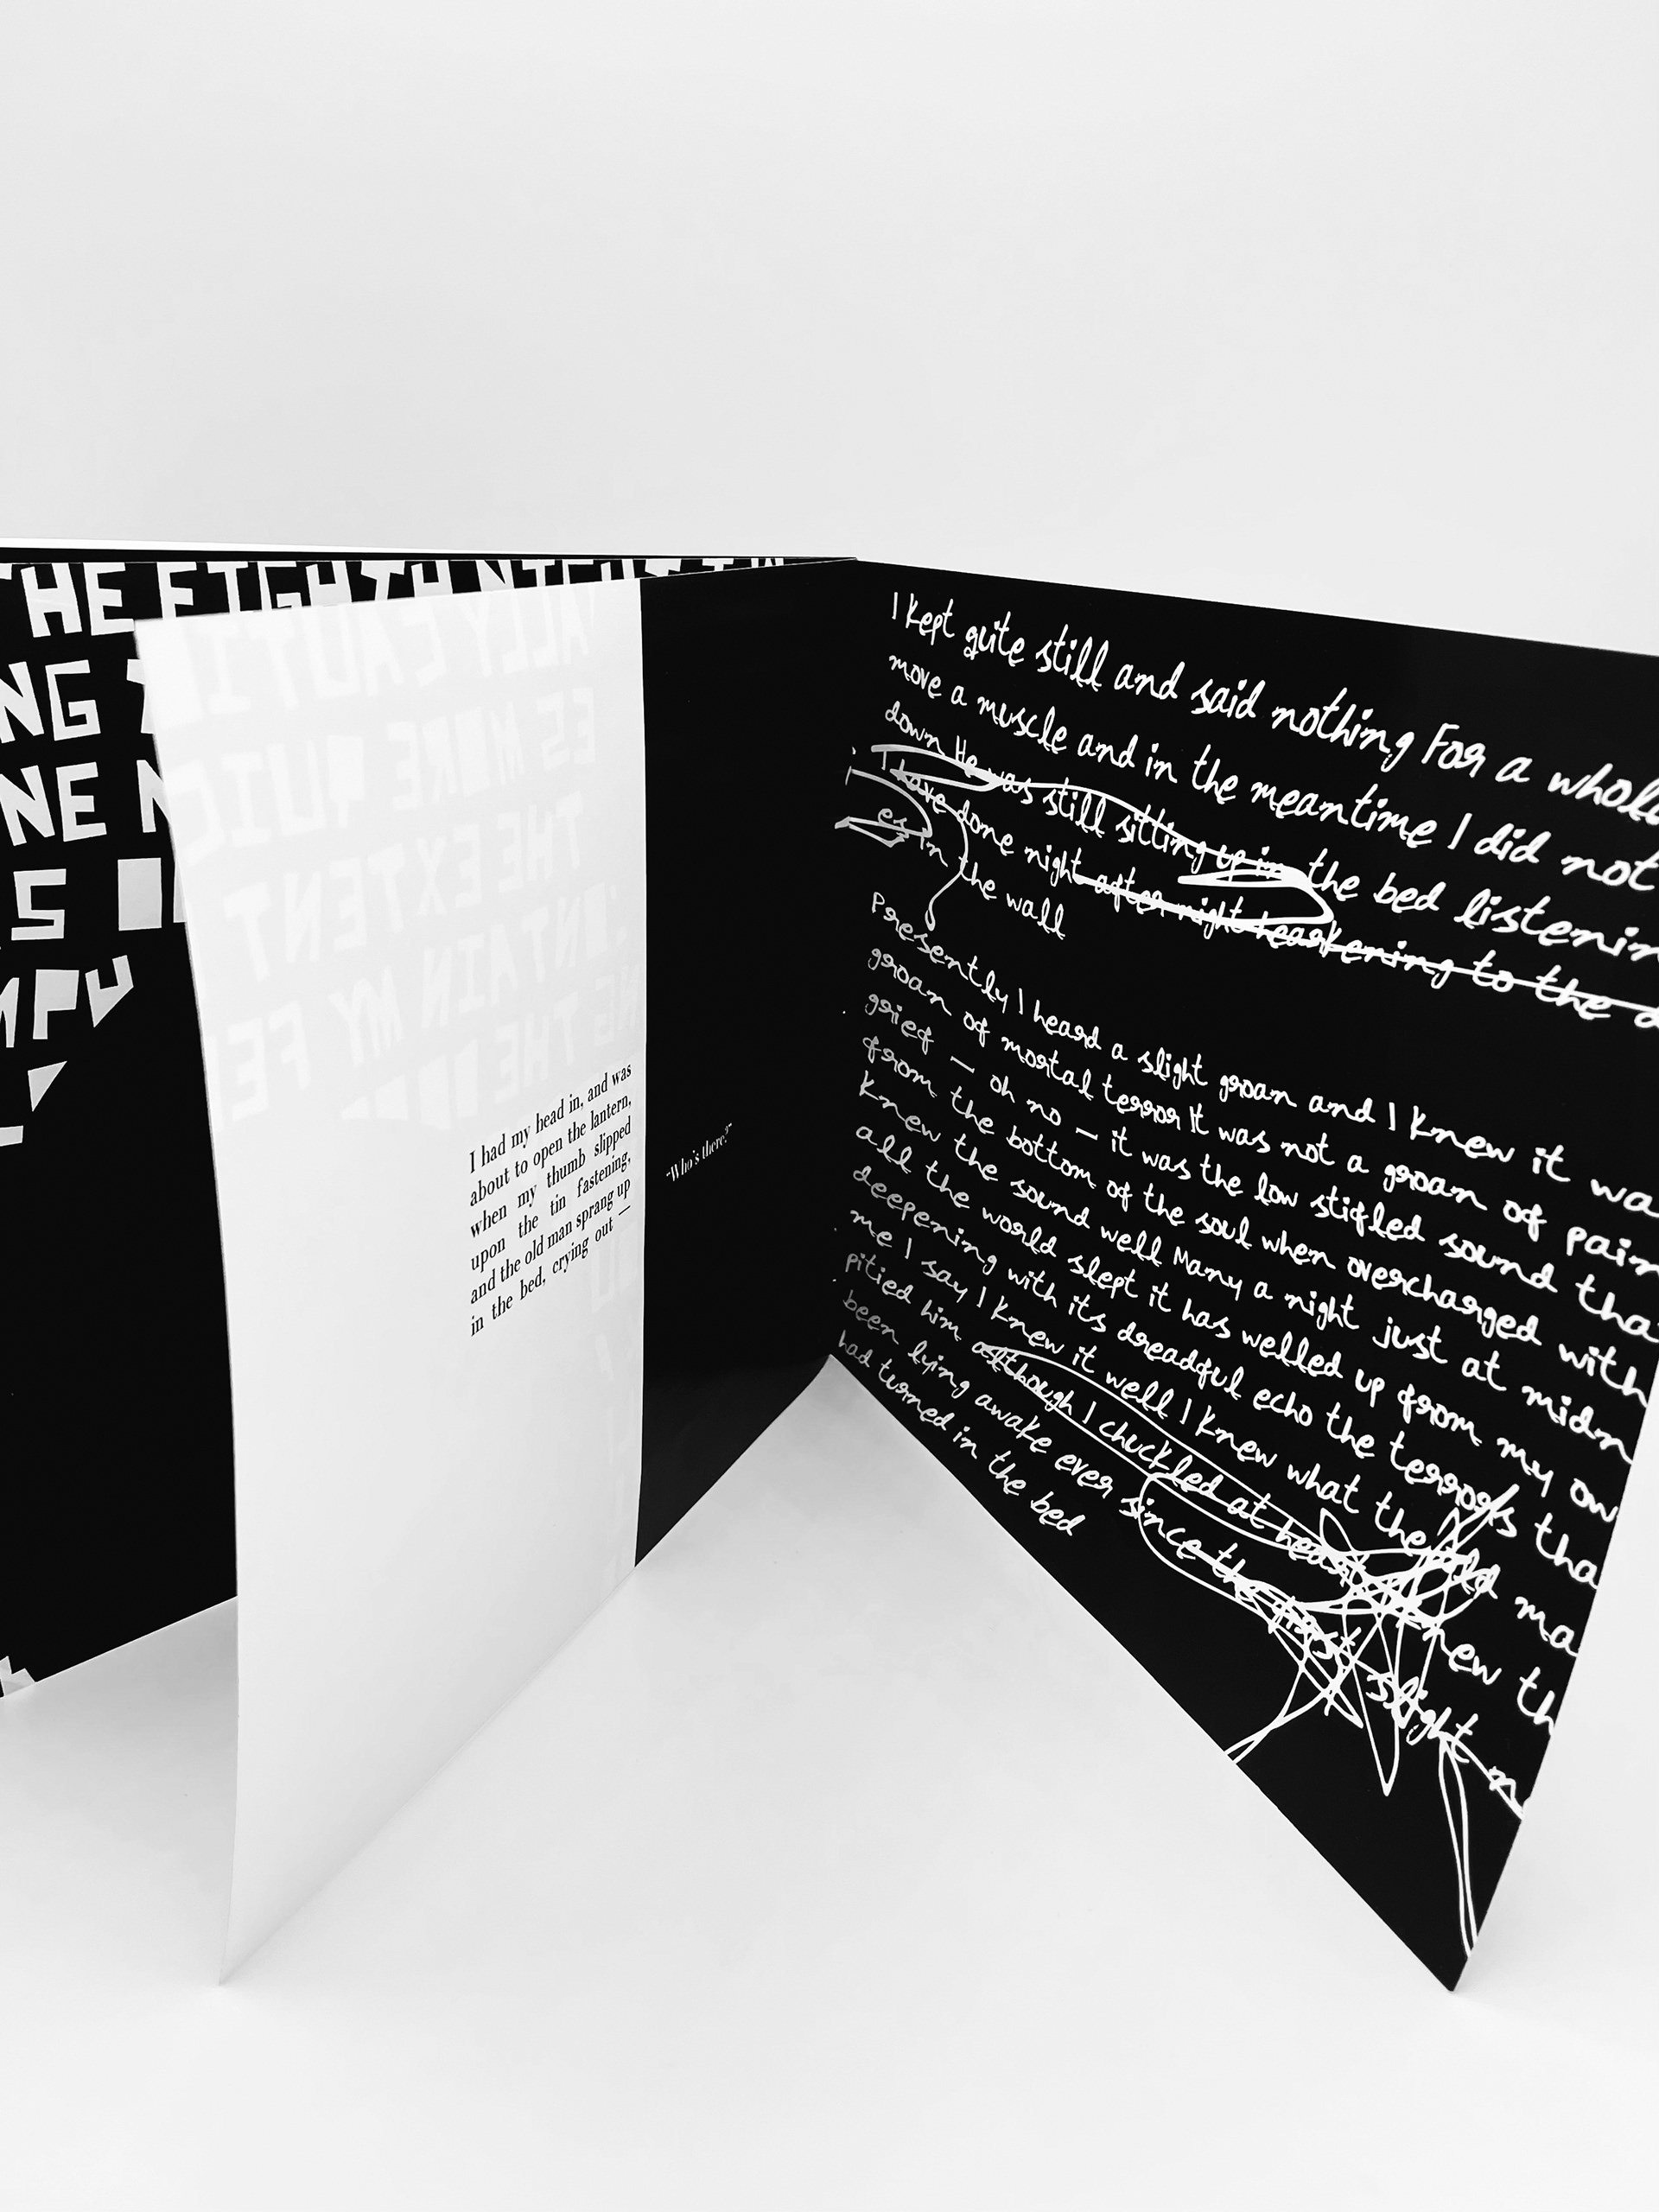 THE EIGHTH NIGHT I W
NG
NE
S
MPU
I had my head in, and was
about to open the lantern,
when my thumb slipped
upon the tin fastening,
and the old man sprang up
in the bed, crying out —
“Who’s there?”
I kept quite still and said nothing For a whole
move a muscle and in the meantime I did not
down He was still sitting up in the bed listenin
I have done night after night hearkening to the d
es in the wall
Presently I heard a slight groan and I knew it wa
groan of mortal terror It was not a groan of pain
grief — oh no — it was the low stifled sound tha
from the bottom of the soul when overcharged with
knew the sound well Many a night just at midn
all the world slept it has welled up from my ow
deepening with its dreadful echo the terrors tha
me I say I knew it well I knew what the old ma
pitied him although I chuckled at heart I knew th
been lying awake ever since the first slight no
had turned in the bed